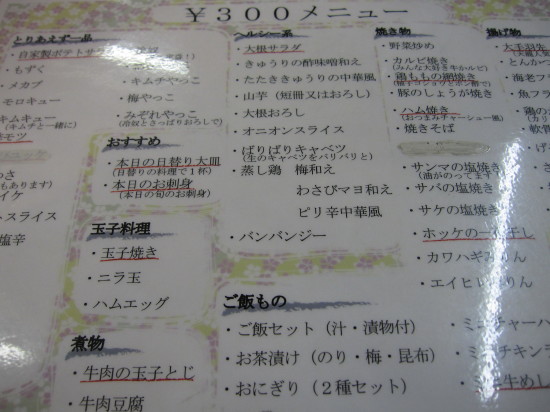 ￥３００メニュー
とりあえず一品
・自家製ポテトサ
・もずく
・メカブ
・モロキュー
（キムチと一緒に）
・キムチやっこ
・梅やっこ
・みぞれやっこ
（冷奴とさっぱりおろしで）
おすすめ
・本日の日替り大皿
（日替りの料理で１杯）
・本日のお刺身
（本日の旬のお刺身）
スライス
塩辛
玉子料理
・玉子焼き
・ニラ玉
・ハムエッグ
煮物
・牛肉の玉子とじ
・牛肉豆腐
ヘルシー系
・大根サラダ
・きゅうりの酢味噌和え
・たたききゅうりの中華風
・山芋（短冊又はおろし）
・大根おろし
・オニオンスライス
・ばりばりキャベツ
（生のキャベツをバリバリと）
・蒸し鶏　梅和え
わさびマヨ和え
ピリ辛中華風
・バンバンジー
ご飯もの
・ご飯セット（汁・漬物付）
・お茶漬け（のり・梅・昆布）
・おにぎり（２種セット）
焼き物
・野菜炒め
・カルビ焼き
（みんな大好き牛カルビ）
・鶏ももの網焼き
（柚子コショウとポン酢で）
・豚のしょうが焼き
・ハム焼き
（おつまみチャーシュー風）
・焼きそば
・サンマの塩焼き
（油がのってます）
・サバの塩焼き
・サケの塩焼き
・ホッケの一夜干し
・カワハギみりん
・エイヒレみりん
揚げ物
・大手羽先
・とんかつ
・お好
・魚フラ
・鶏の
・軟骨
・ミニチャーハ
・ミニチキンラ
・ミニ牛めし